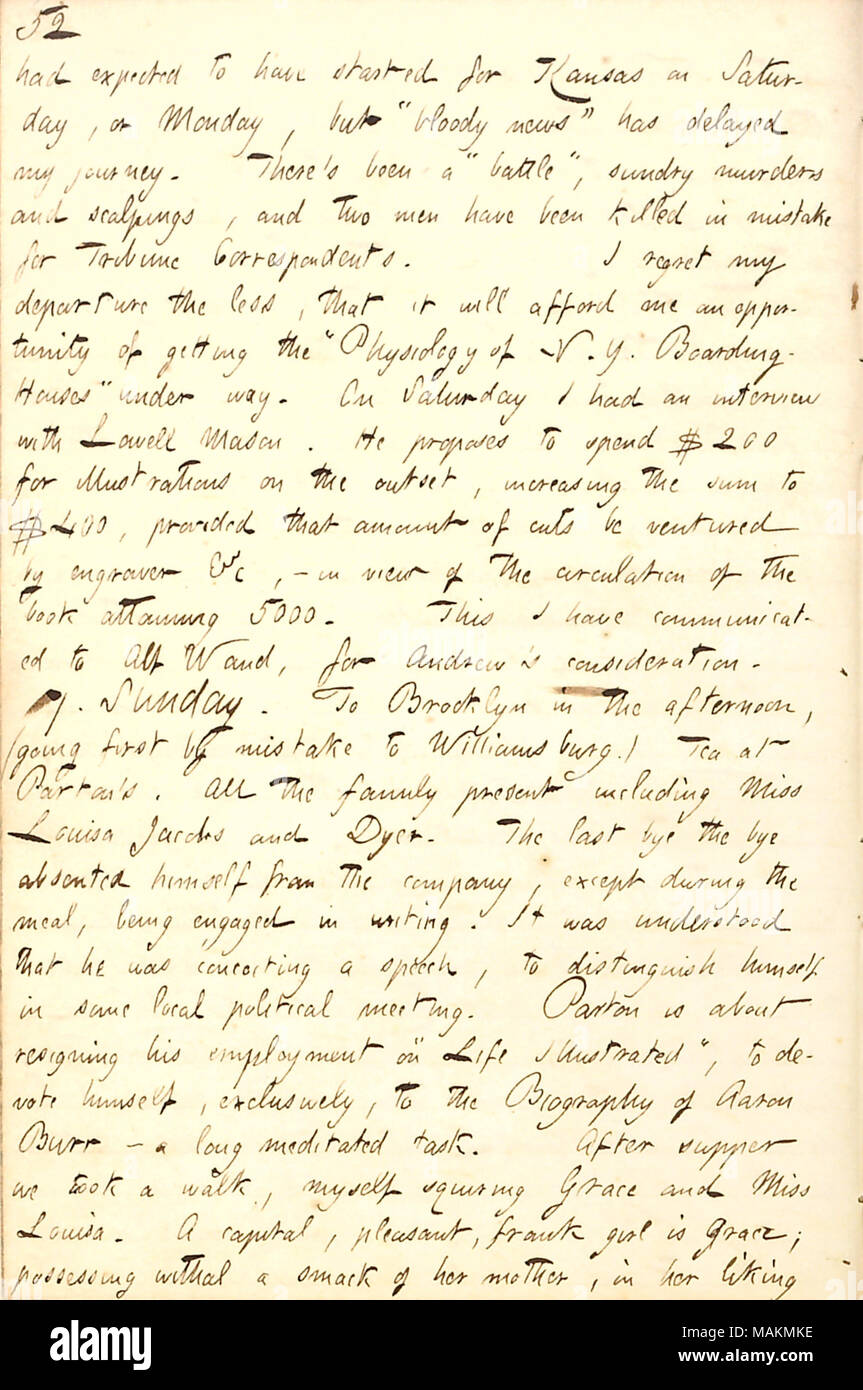 52
had expected to have started for Kansas on Satur-
day, or Monday, but "bloody news" has delayed
my journey. There's been a "battle", sundry murders
and scalpings, and two men have been killed in mistake
for Tribune Correspondents. I regret my
departure the less, that it will afford me an oppor-
tunity of getting the "Physiology of N. Y. Boarding-
Houses" under way. On Saturday I had an interview
with Lowell Mason. He proposes to spend $200
for illustrations on the outset, increasing the sum to
$400, provided that amount of cuts be ventured
by engraver &c, — in view of the circulation of the
book attaining 5000. This I have communicat-
ed to Alf Waud, for Andrew's consideration.
7. Sunday. To Brooklyn in the afternoon,
(going first by mistake to Williamsburg.) Tea at
Parton's. All the family present including Miss
Louisa Jacobs and Dyer. The last bye the bye
absented himself from the company, except during the
meal, being engaged in writing. It was understood
that he was concocting a speech, to distinguish himself
in some local political meeting. Parton is about
resigning his employment on "Life Illustrated", to de-
vote himself, exclusively, to the Biography of Aaron
Burr — a long meditated task. After supper
we took a walk, myself squiring Grace and Miss
Louisa. A capital, pleasant, frank girl is Grace;
possessing withal a smack of her mother, in her liking
alamy
Image ID: MAKMKE
www.alamy.com